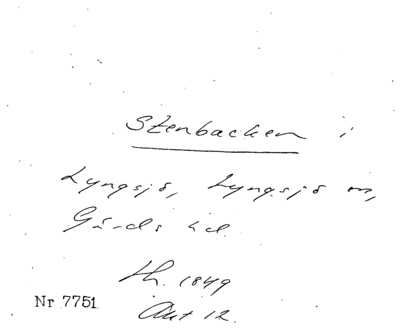 Stenbacken i
Lyngsjö, Lyngsjö sn,
Gärds hd.
th. 1849
Nr 7751.
Akt 12.